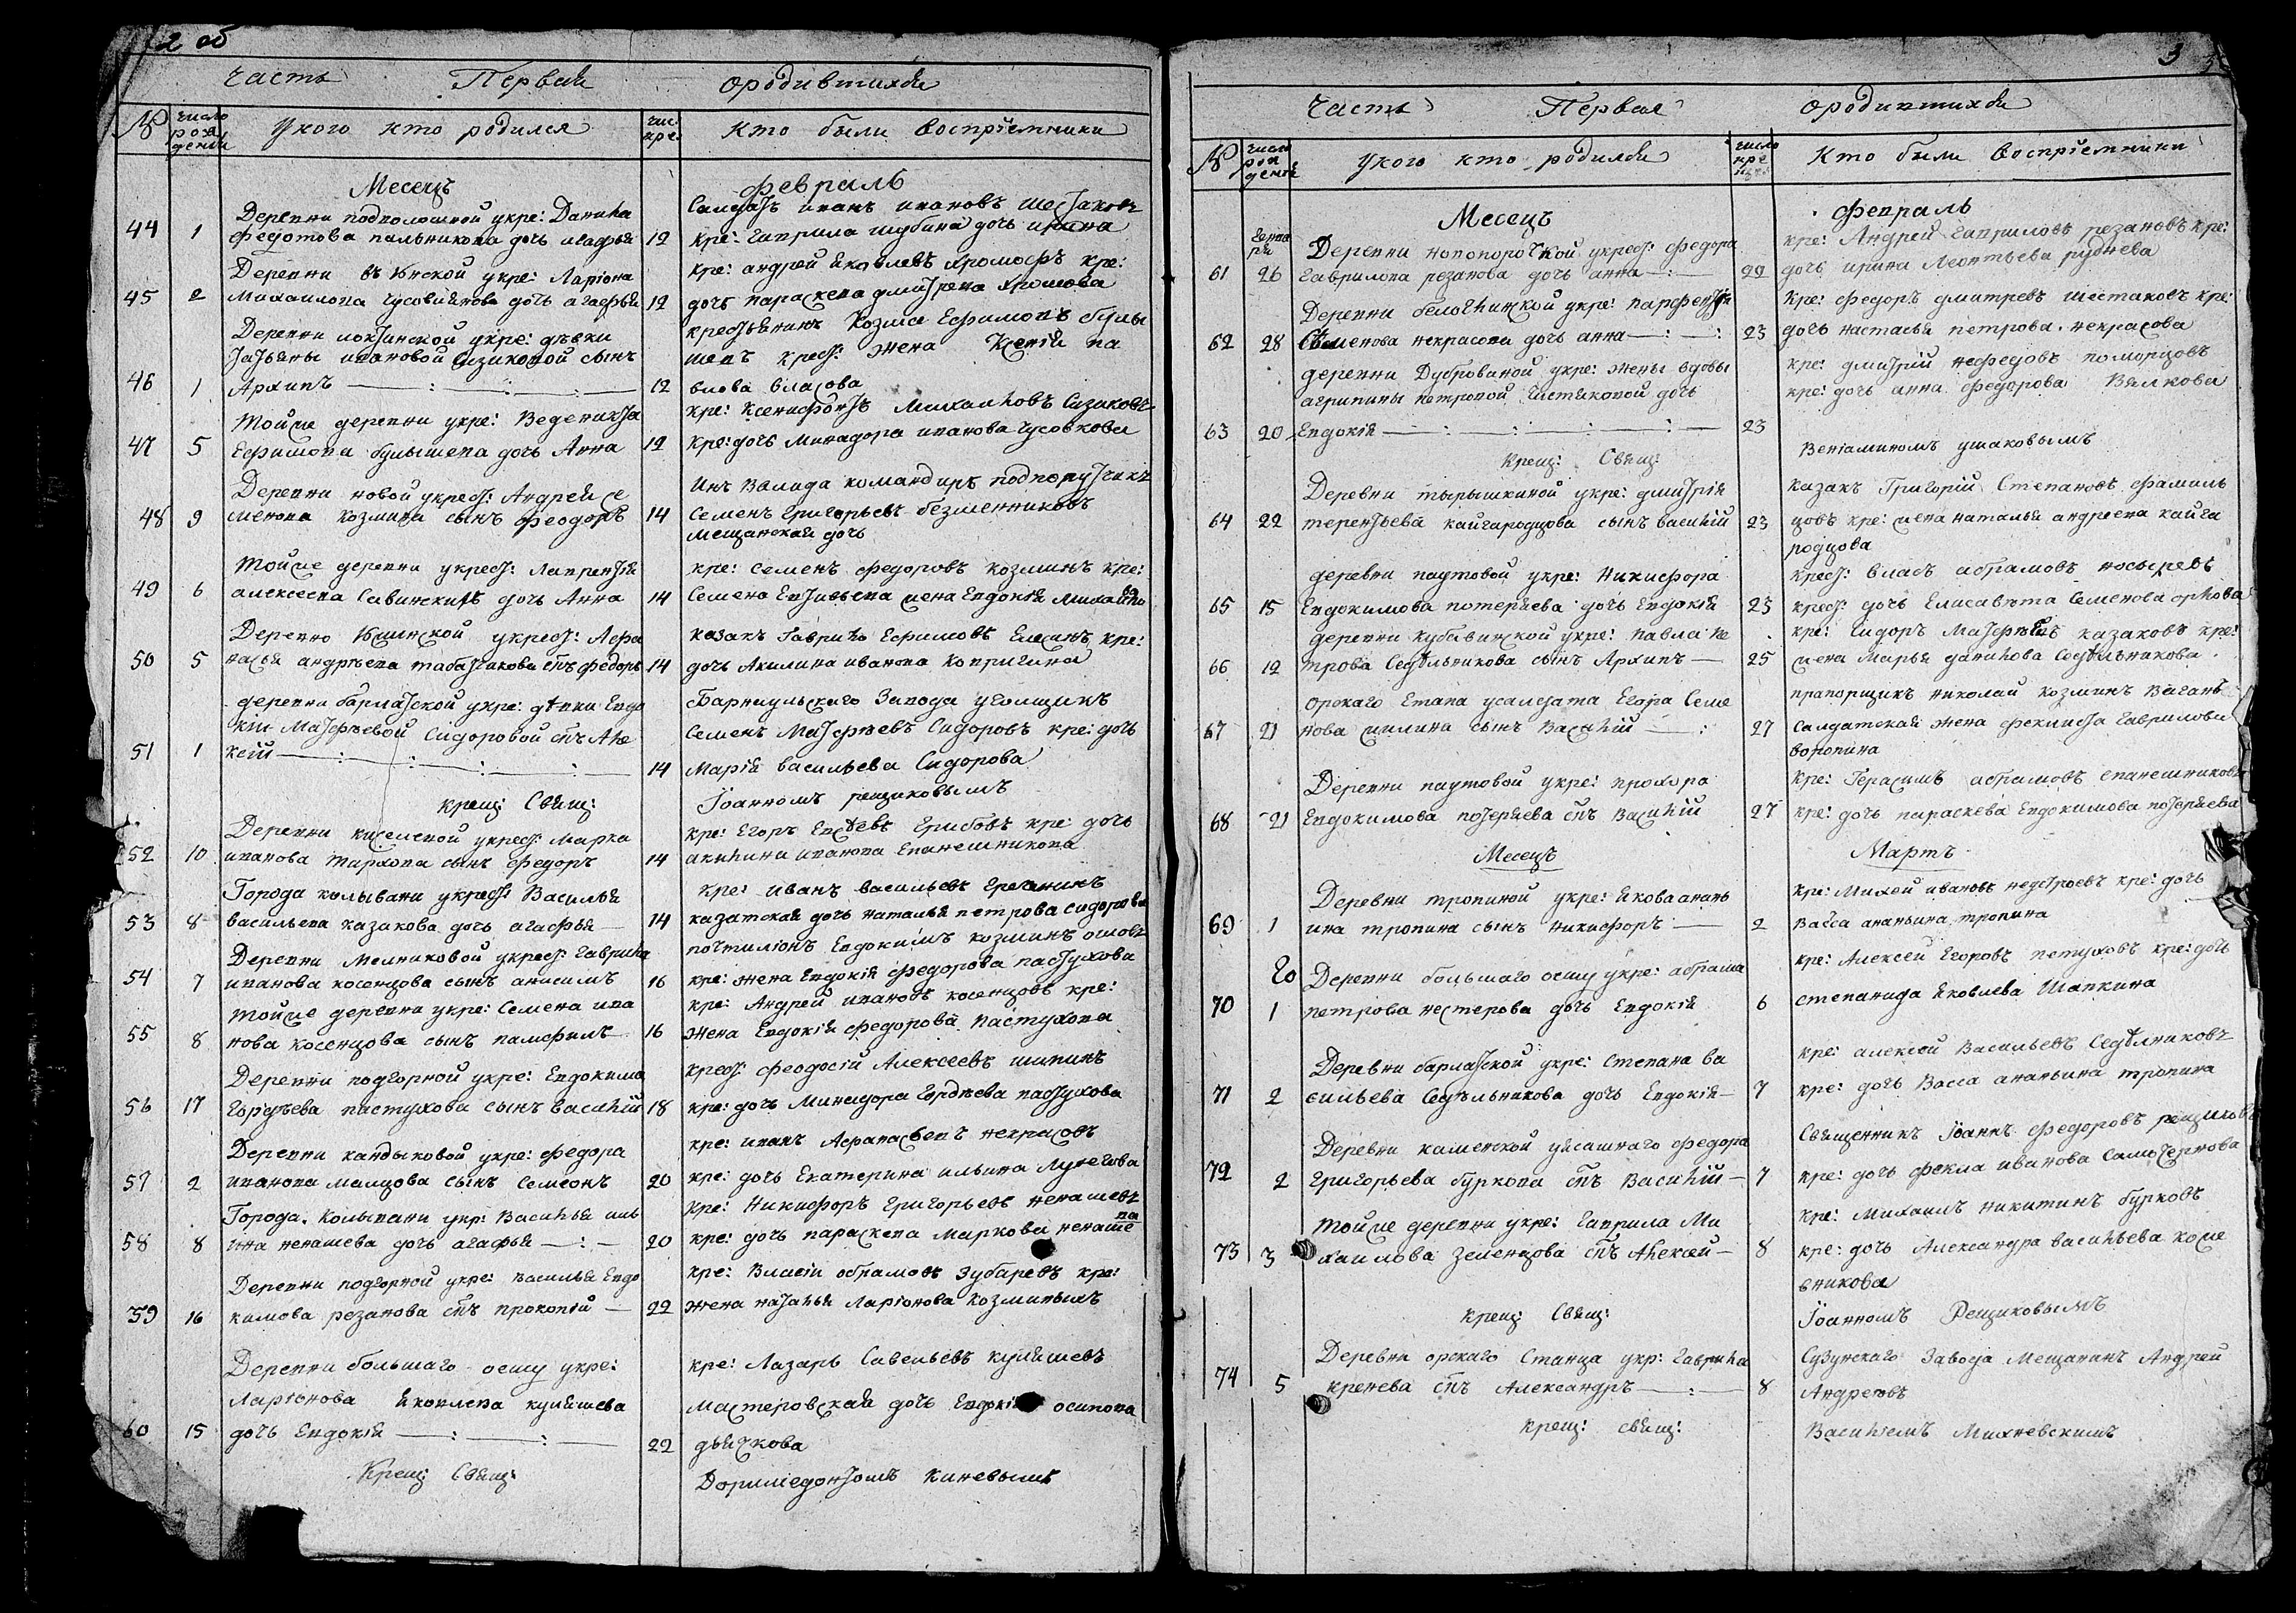 2 об
Часть Первая ородившихся
№ число рожденія Укого кто родился чис: кре: Кто были Воспріемники
Месецъ Февраль
Деревни подволошной укре: Данила Салдатъ иванъ ивановъ шестаковъ
44 1 Федотова пильникова дочь агафья 12 кре: гаврила шубина дочь ирина
Деревни укре: Ларіона кре: андрей яковлевъ хромовъ кре:
45 2 Михаилова чусовлянова дочь агафья 12 дочь параскева дмитрева хромова
Деревни локтинской укре: девки крестьянинъ Козма Ефимовъ булы
Татьяны ивановой Сизиковой сынъ шевъ крест: жена Ксенія па
46 1 Архипъ 12 влова власова
Тойже деревни укре: Веденикта кре: Ксенофонтъ Михайловъ Сизиковъ
47 5 Ефимова булышева дочь Анна 12 кре: дочь Минадора иванова чусовкова
Деревни новой укрест: Андрея се Инъ Валида командиръ подпоручикъ
48 9 менова Козмина сынъ Феодоръ 14 Семенъ Григорьевъ безменниковъ
мещанская дочь
Тойже деревни укрест: Лаврентія кре: Семенъ федоровъ козминъ кре:
49 6 алексеева Савинскихъ дочь Анна 14 Семена жена Евдокія Михайло
ва
Деревни укрест: Афа казакъ Гаврило Ефимовъ кре:
50 5 насья андреева табатчикова снъ федоръ 14 дочь Акилина иванова Копригина
деревни барлатской укре: девки Евдо Барнаульскаго Завода угольщикъ
кіи Матфеевой Сидоровой снъ Але Семенъ Матфеевъ Сидоровъ кре: дочь
51 1 ксій 14 Марія васильева Сидорова
крещ: Свящ: Іоанномъ рещиковымъ
Деревни киселевой укрест: Марка кре: Егоръ Грибовъ кре: дочь
52 10 иванова Тархова сынъ федоръ 14 акилина иванова Епанешникова
Города колывани укрест: Василья кре: иванъ васильевъ гречанинъ
53 8 васильева казакова дочь агафья 14 казатская дочь наталья петрова сидорова
Деревни Мелниковой укрест: Гаврила почтиліонъ Евдокимъ козминъ
54 7 иванова косенцова сынъ анисимъ 16 кре: жена Евдокія федорова пастухова
Тойже деревни укре: Семена ива кре: Андрей ивановъ косенцовъ кре:
55 8 нова косенцова сынъ памфилъ 16 жена Евдокія федорова Пастухова
Деревни подгорной укре: Евдокима крест: феодосій Алексеевъ шипинъ
56 17 Гордеева пастухова сынъ василій 18 кре: дочь Минадора Гордеева пастухова
Деревни кандыковой укре: федора кре: иванъ Афанасьевъ некрасовъ
57 2 иванова малцова сынъ Семеонъ 20 кре: дочь Екатерина ильина Лунегова
Города Колывани укр: Василья иль кре: Никифоръ Григорьевъ ненашевъ
58 8 ина ненашева дочь агафья 20 кре: дочь параскева Маркова ненаше
ва
Деревни подгорной укре: василья Евдо кре: Власіи абрамовъ Зубаревъ кре:
59 16 кимова резанова снъ прокопій 22 жена наталья Ларіонова Козминыхъ
Деревни большаго оешу укре: кре: Лазарь Савельевъ куляшевъ
Ларіонова Яковлева куляшева мастеровская дочь Евдокія осипова
60 15 дочь Евдокія 22 дьячкова
Крещ: Свящ: Дормедонтомъ Киневымъ
3
Часть Первая ородившихся
№ число рожденія Укого кто родился число крещен Кто были Воспріемники
Месецъ Февраль
генва ря Деревни новопоротской укрест: федора кре: Андрей гавриловъ резановъ кре:
61 26 Гаврилова резанова дочь анна 22 дочь ирина Леонтьева руднева
Деревни укре: парфентія кре: федоръ дмитревъ шестаковъ кре:
62 28 Семенова некрасова дочь анна 23 дочь настасья петрова некрасова
деревни Дубровиной укре: жены вдовы кре: дмитрій нефедовъ поморцовъ
агрипины петровой Чистяковой дочь кре: дочь анна федорова Вялкова
63 20 Евдокія 23
Крещ: Свящ: Веніаминомъ ушаковымъ
Деревни тырышкиной укре: дмитрія казакъ Григорій Степановъ фамиль
64 22 терентьева кайгародцова сынъ василій 23 цовъ кре: жена наталья андреева кайга
родцова
деревни паутовой укре: Никифора крест: власъ абрамовъ носыревъ
65 15 Евдокимова потеряева дочь Евдокія 23 крест: дочь Елисавета Семенова орлова
деревни кубавинской укре: павла пе кре: Сидоръ Матфеевъ казаковъ кре:
66 12 трова Седельникова сынъ Архипъ 25 жена Марья данилова Седельникова
орскаго Етапа усалдата Егора Семе прапорщикъ николай козминъ Ваганъ
67 21 нова жилина сынъ Василій 27 Салдатская жена феклиста Гаврилова
воронина
Деревни паутовой укре: прохора кре: Герасимъ абрамовъ епанешниковъ
68 21 Евдокимова потеряева снъ Василій 27 кре: дочь параскева Евдокимова потеряева
Месецъ Мартъ
Деревни тропиной укре: якова анань кре: Михей ивановъ кре: дочь
69 1 ина тропина сынъ никифоръ 2 Васса ананьина тропина
Деревни большаго оешу укре: абрама кре: Алексей Егоровъ петуховъ кре: дочь
70 1 петрова нестерова дочь Евдокія 6 степанида яковлева Шапкина
Деревни барлатской укре: степана ва кре: алексей Васильевъ Седелниковъ
71 2 сильева Седельникова дочь Евдокія 7 кре: дочь Васса ананьина тропина
Деревни каменской уясашнаго федора Священникъ Іоаннъ федоровъ рещиковъ
72 2 Григорьева буркова снъ Василій 7 кре: дочь фекла иванова Самочернова
Тойже деревни укре: гаврила Ми кре: Михаилъ никитинъ бурковъ
73 3 хаилова Зеленцова снъ Алексей 8 кре: дочь Александра васильева коже
вникова
крещ: Свящ: Іоанномъ Рещиковымъ
Деревни орскаго Станца укр: гаврила Сузунскаго Завода Мещанинъ Андрей
74 5 кренева снъ Александръ 8 Андреевъ
крещ: свящ: Василіемъ Михневскимъ